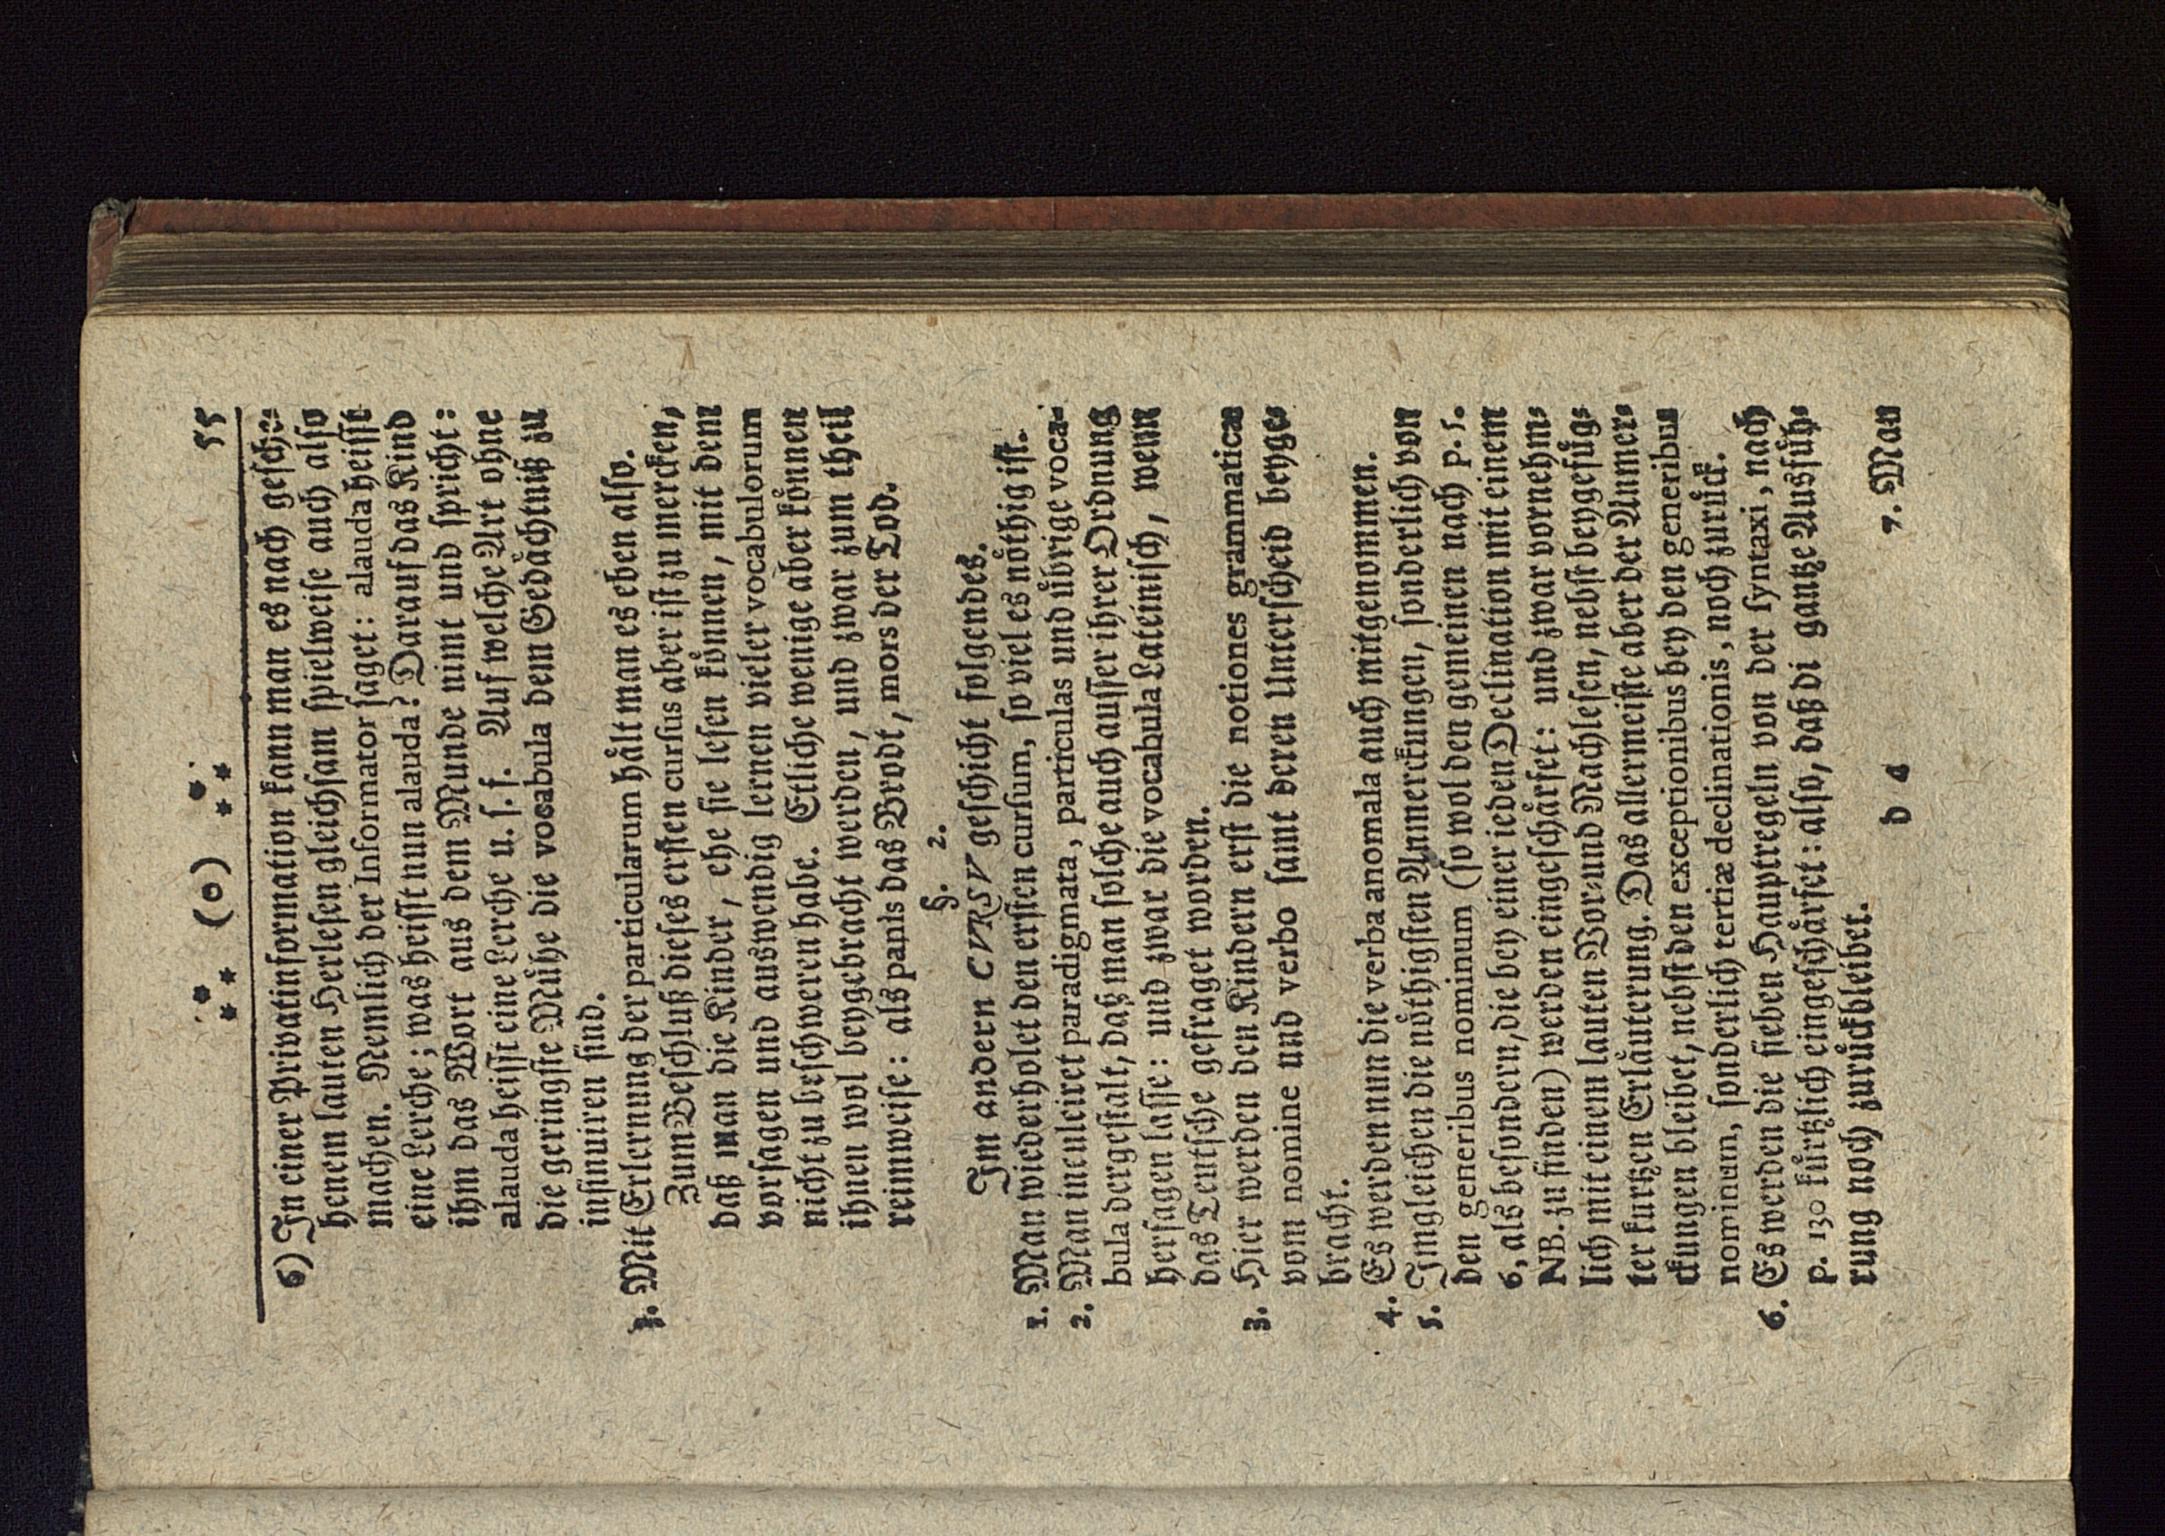 * * * (o) * * * 55
6) In einer Privatinformation kann man es nach gesche-
henem lauten Herlesen gleichsam spielweise auch also
machen. Nemlich der Informator saget: alauda heisst
eine Lerche; was heisst nun alauda? Darauf das Kind
ihm das Wort aus dem Munde nimt und spricht:
alauda heisst eine Lerche u. s. f. Auf welche Art ohne
die geringste Mühe die vocabula dem Gedächtniß zu
insinuiren sind.
3. Mit Erlernung der particularum hält man es eben also.
Zum Beschluß dieses ersten cursus aber ist zu mercken,
daß man die Kinder, ehe sie lesen können, mit dem
vorsagen und auswendig lernen vieler vocabulorum
nicht zu beschweren habe. Etliche wenige aber können
ihnen wol beygebracht werden, und zwar zum theil
reimweise: als panis das Brodt, mors der Tod.
§. 2.
Im andern CVRSV geschicht folgendes.
1. Man wiederholet den ersten cursum, so viel es nöthig ist.
2. Man inculciret paradigmata, particulas und übrige voca-
bula dergestalt, daß man solche auch ausser ihrer Ordnung
hersagen lasse: und zwar die vocabula Lateinisch, wenn
das Teutsche gefraget worden.
3. Hier werden den Kindern erst die notiones grammaticæ
vom nomine und verbo samt deren Unterscheid beyge-
bracht.
4. Es werden nun die verba anomala auch mitgenommen.
5. Imgleichen die nöthigsten Anmerckungen, sonderlich von
den generibus nominum (so wol den gemeinen nach p. 5.
6, als besondern, die bey einer ieden Declination mit einem
NB. zu finden) werden eingeschärfet: und zwar vornehm-
lich mit einem lauten Vor-und Nachlesen, nebst beygefüg-
ter kurtzen Erläuterung. Das allermeiste aber der Anmer-
ckungen bleibet, nebst den exceptionibus bey den generibus
nominum, sonderlich tertiæ declinationis, noch zurück.
6. Es werden die sieben Hauptregeln von der syntaxi, nach
p. 130 kürtzlich eingeschärfet: also, daß di gantze Ausfüh-
rung noch zurückbleibet.
b 4 7. Man